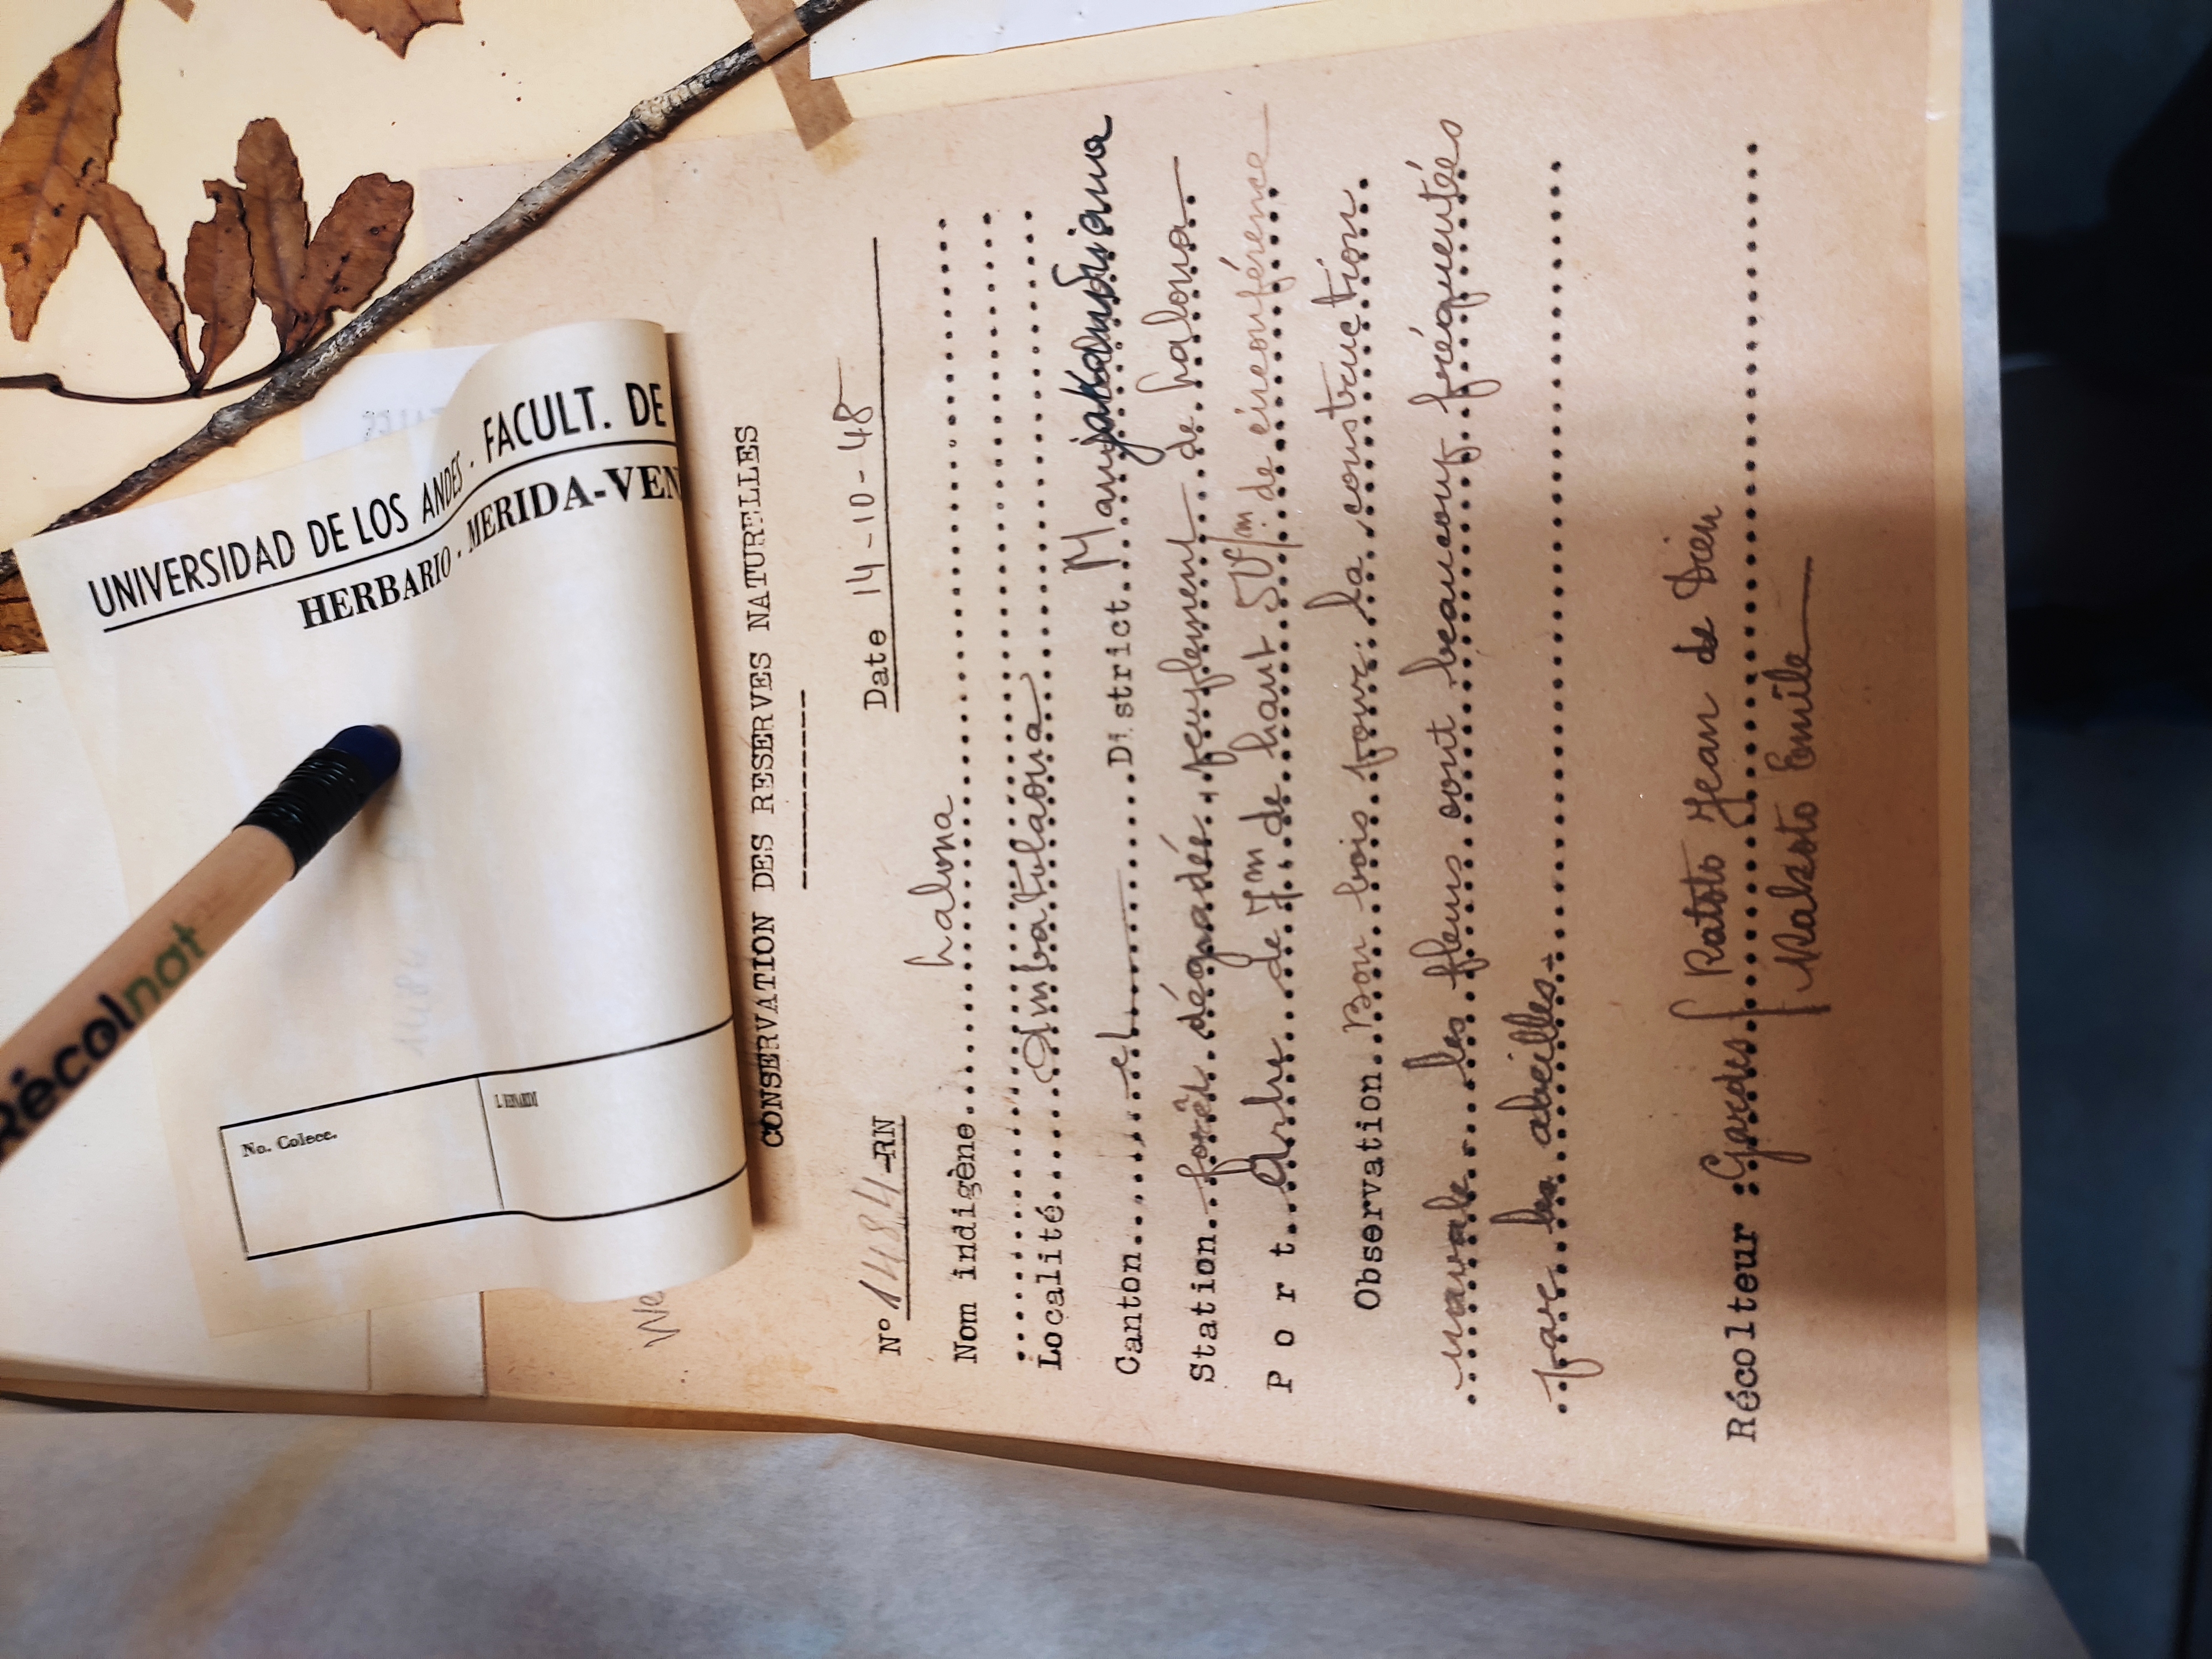 UNIVERSIDAD DE LOS ANDES . FACULT. DE
HERBARIO . MERIDA-VEN
No. Colecc.
Récolnat
CONSERVATION DES RESERVES NATURELLES
N° 1484-RN Date 14-10-48
Nom indigène halona
Localité Ambatolaona
Canton el District Manjakandriana
Station forêt dégradée, peuplement de halona
Port Arbre de 7m de haut 50c/m de circonférence
Observation Bon bois pour la construction
navale. les fleurs sont beaucoup fréquentés
par les abeilles.
Récolteur : Gardes Ratoto Jean de Dieu
Rakoto Emile